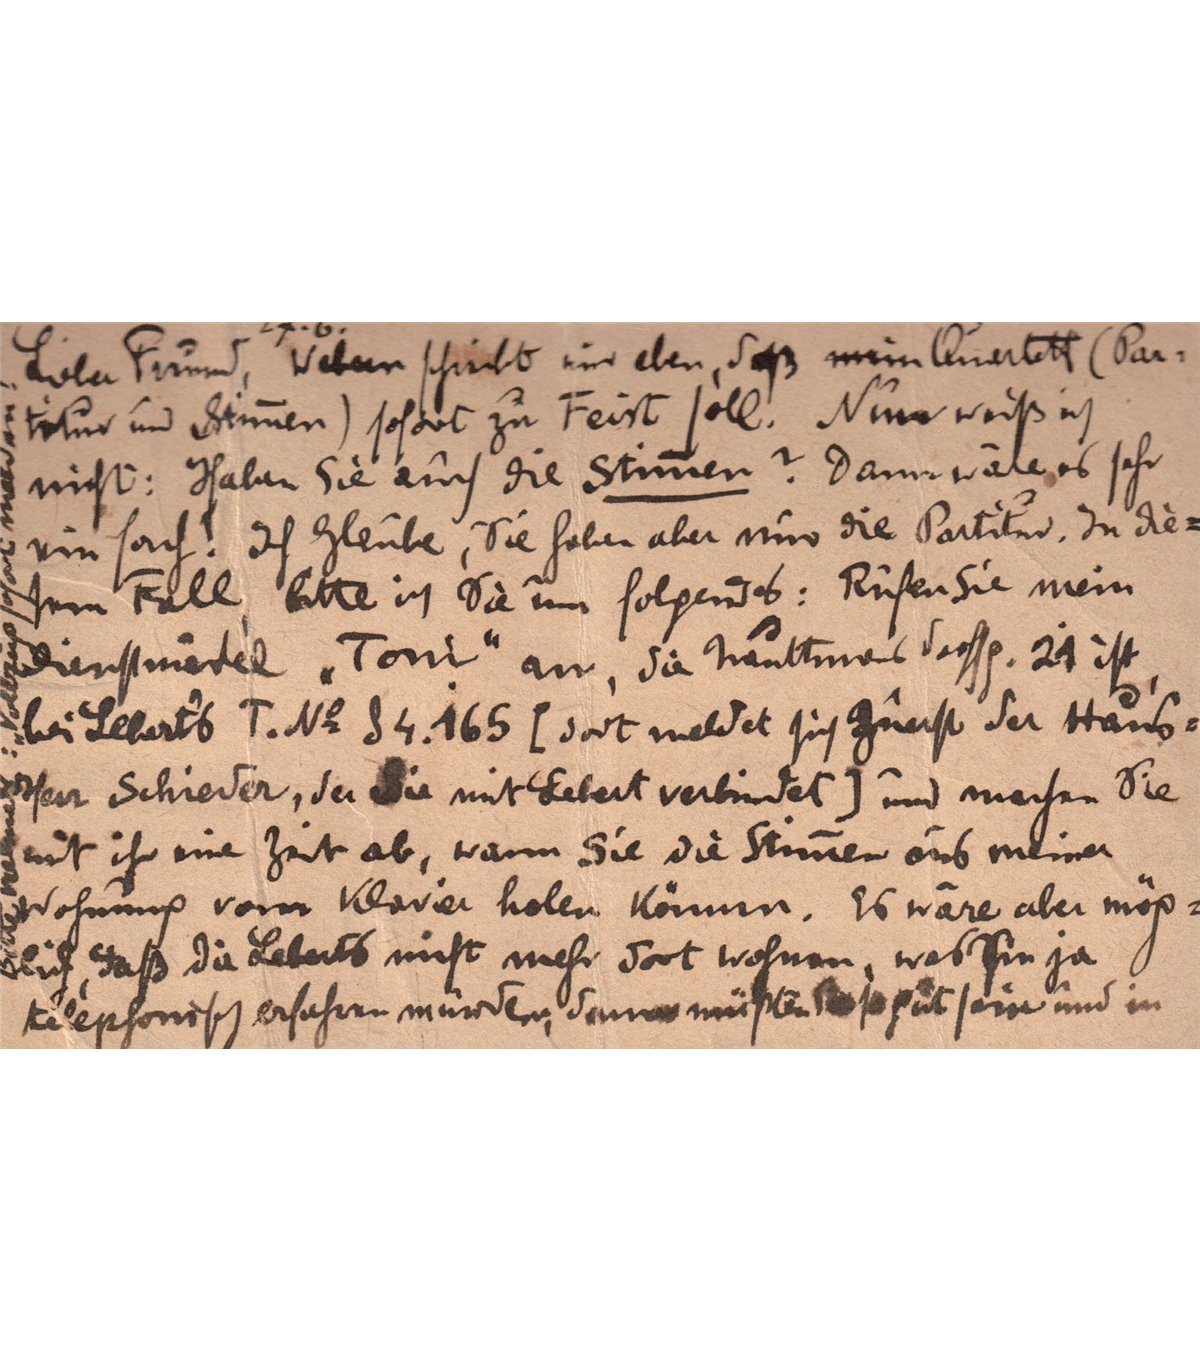 27.6.
Lieber Freund, Webern schreibt mir eben, daß mein Quartett (Par-
titur und Stimmen) sofort zu Feist soll. Nun weiß ich
nicht: Haben Sie auch die Stimmen? Dann wäre es sehr
einfach! Ich glaube, Sie haben aber nur die Partitur. In die=
sem Fall bitte ich Sie um folgendes: Rufen Sie mein
Dienstmädel „Toni“ an, die 21 ist,
bei Leberts T. No 84.165 [dort meldet sich zuerst der Haus=
herr Schieder, der Sie mit Lebert verbindet] und machen Sie
mit ihr eine Zeit ab, wann Sie die Stimmen aus meiner
Wohnung vom Klavier holen können. Es wäre aber mög=
lich, daß die Leberts nicht mehr dort wohnen, was Sie ja
telephonisch erfahren würden, dann müßten Sie so gut sein und in
Bitte nehmen :